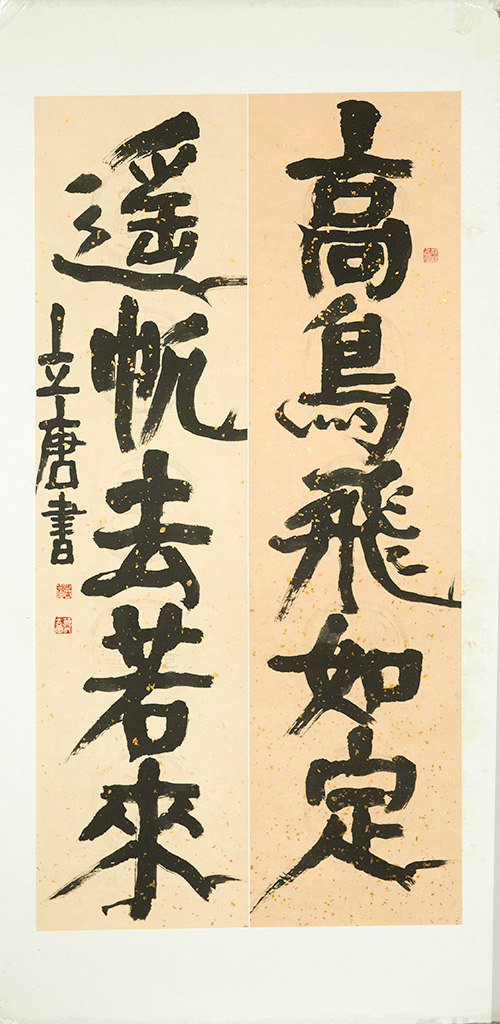 高鳥飛如定
遥帆去若來
立唐書